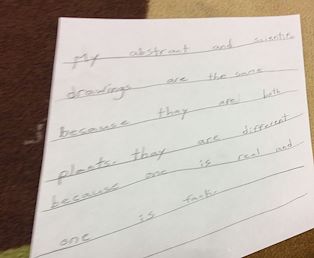 My abstract and scientific
drawings are the same
because thay are both
plants. thay are different
because one is real and
one is fack.